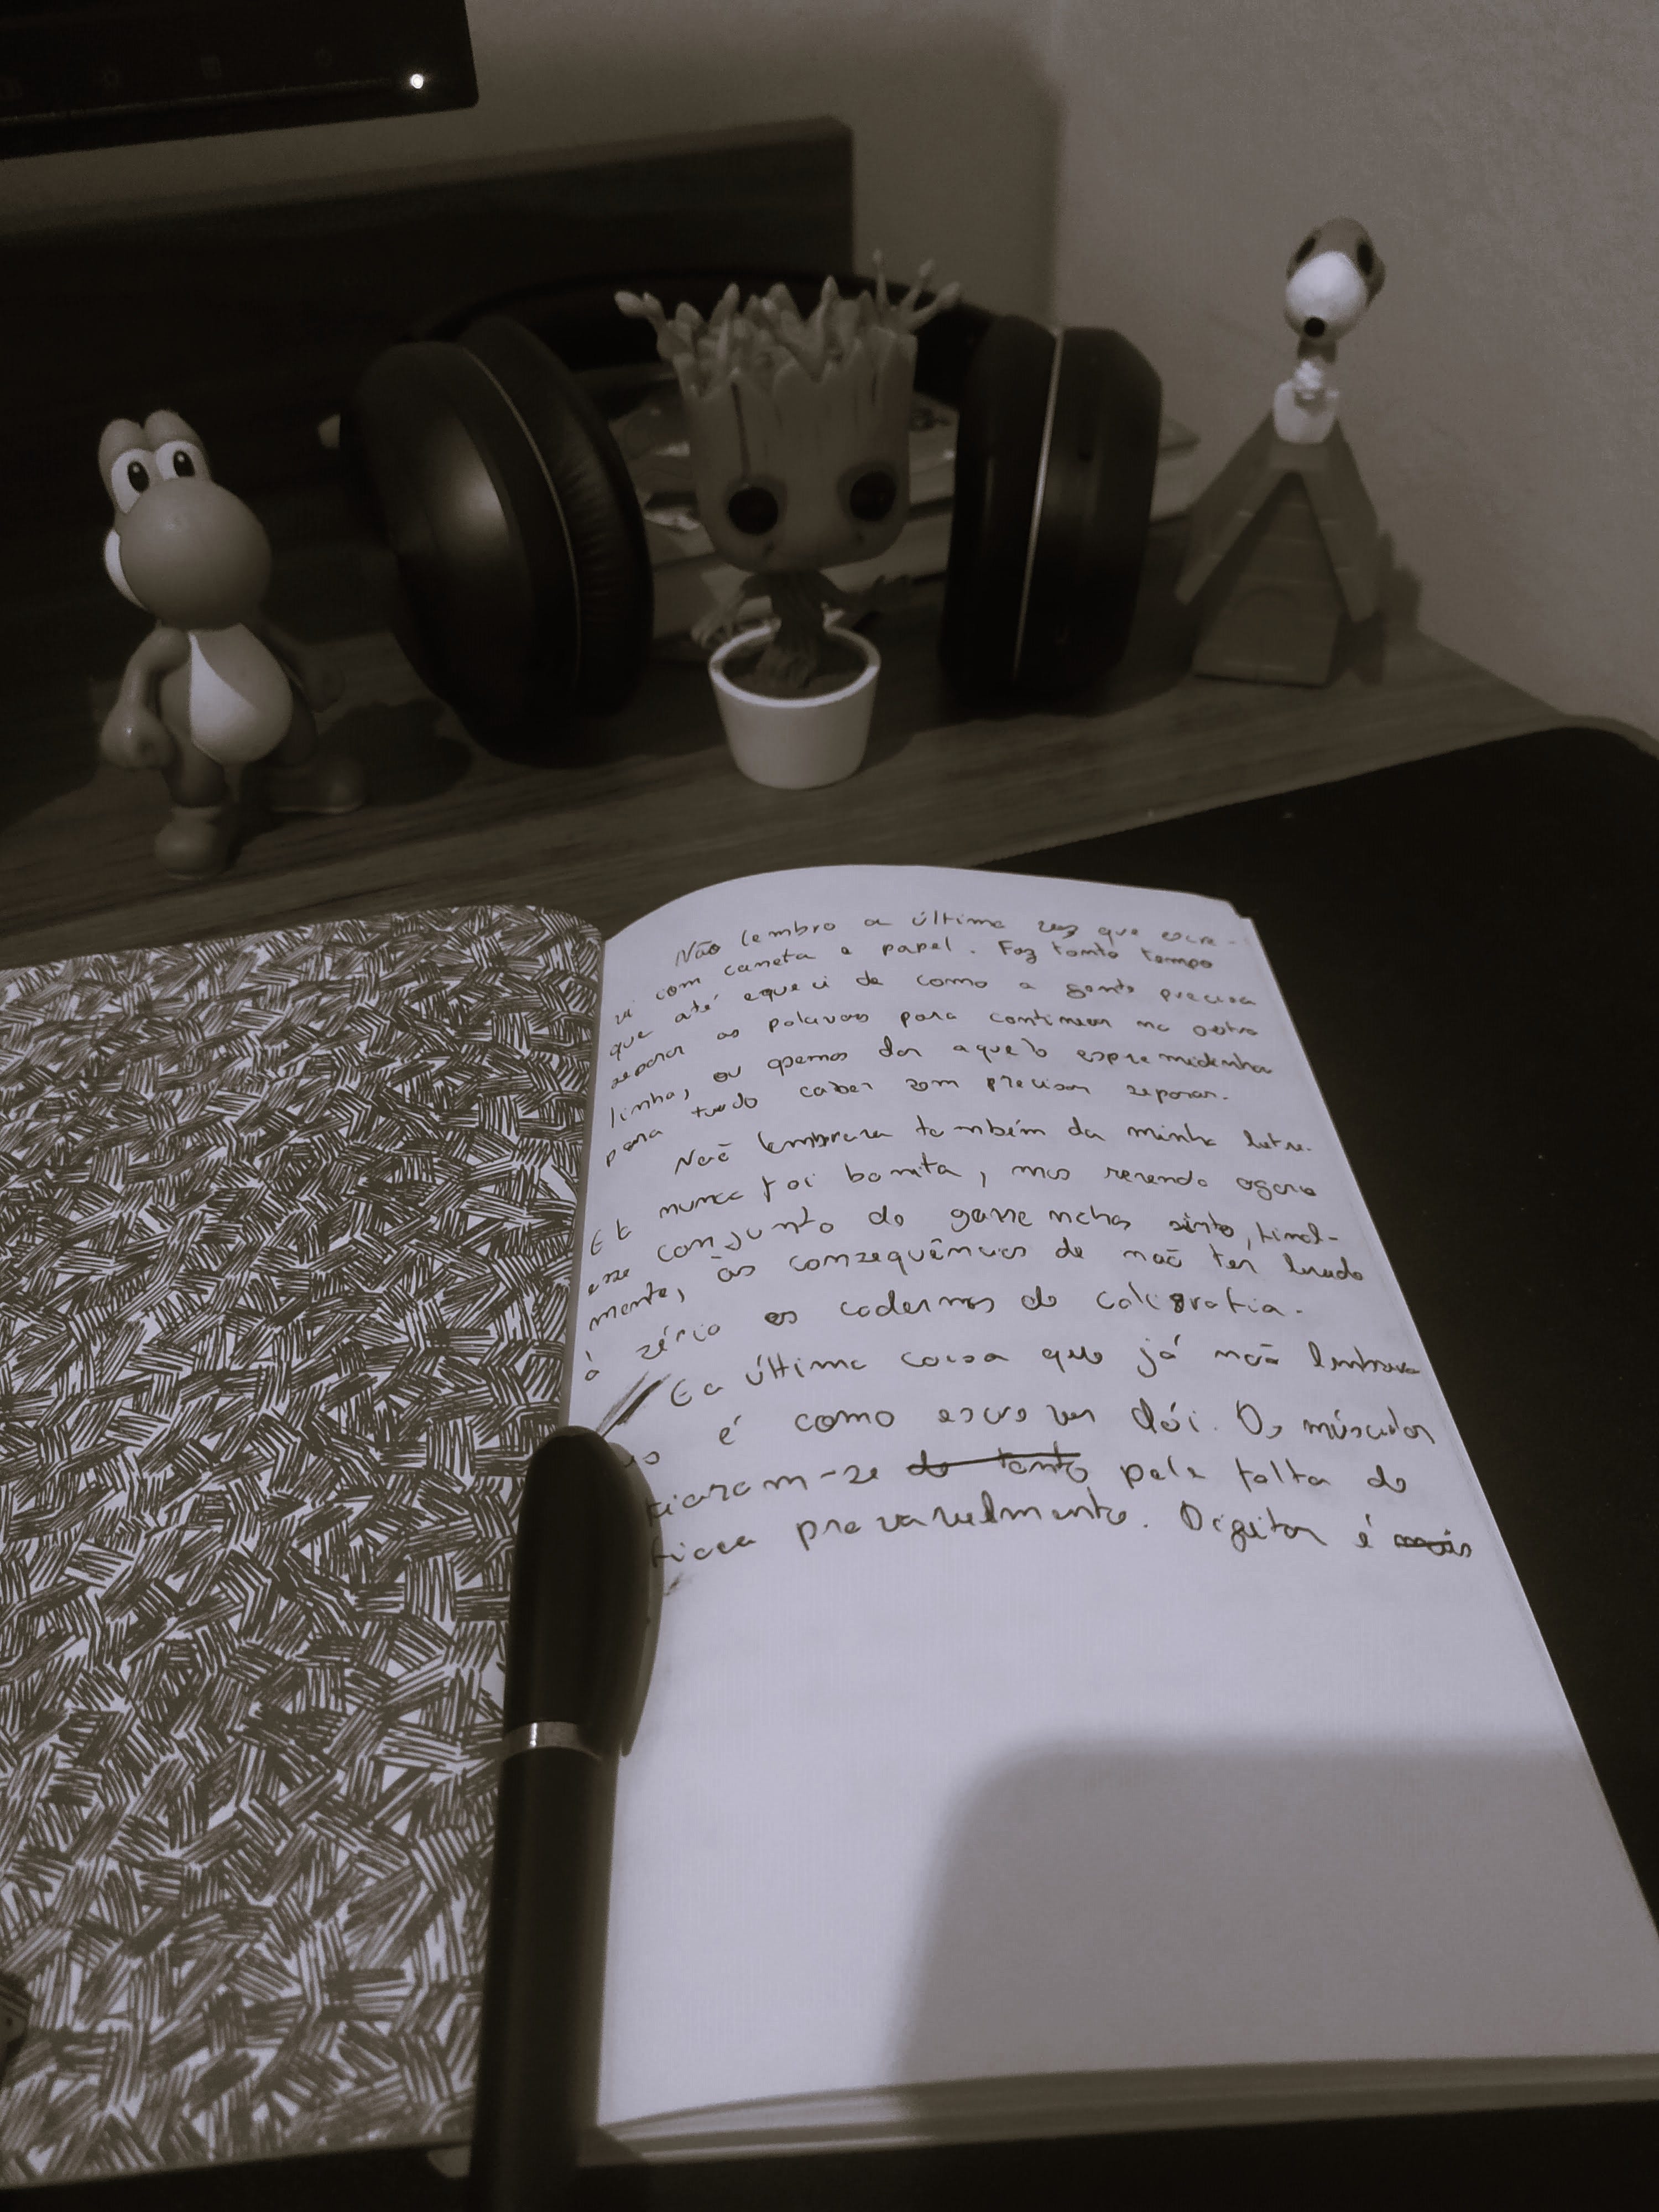 Não lembro a última vez que escre-
vi com caneta e papel. Faz tanto tempo
que até esqueci de como a gente precisa
separar as palavras para continuar na outra
linha, ou apenas dar aquela espremidinha
para tudo caber sem precisar separar.
Não lembrava também da minha letra.
Ela nunca foi bonita, mas revendo agora
esse conjunto de garranchos sinto, final-
mente, as consequências de não ter levado
à sério os cadernos de caligrafia.
E a última coisa que já não lembrava
é como escrever dói. Os músculos
de tanto pela falta de
provavelmente. Digitar é mais